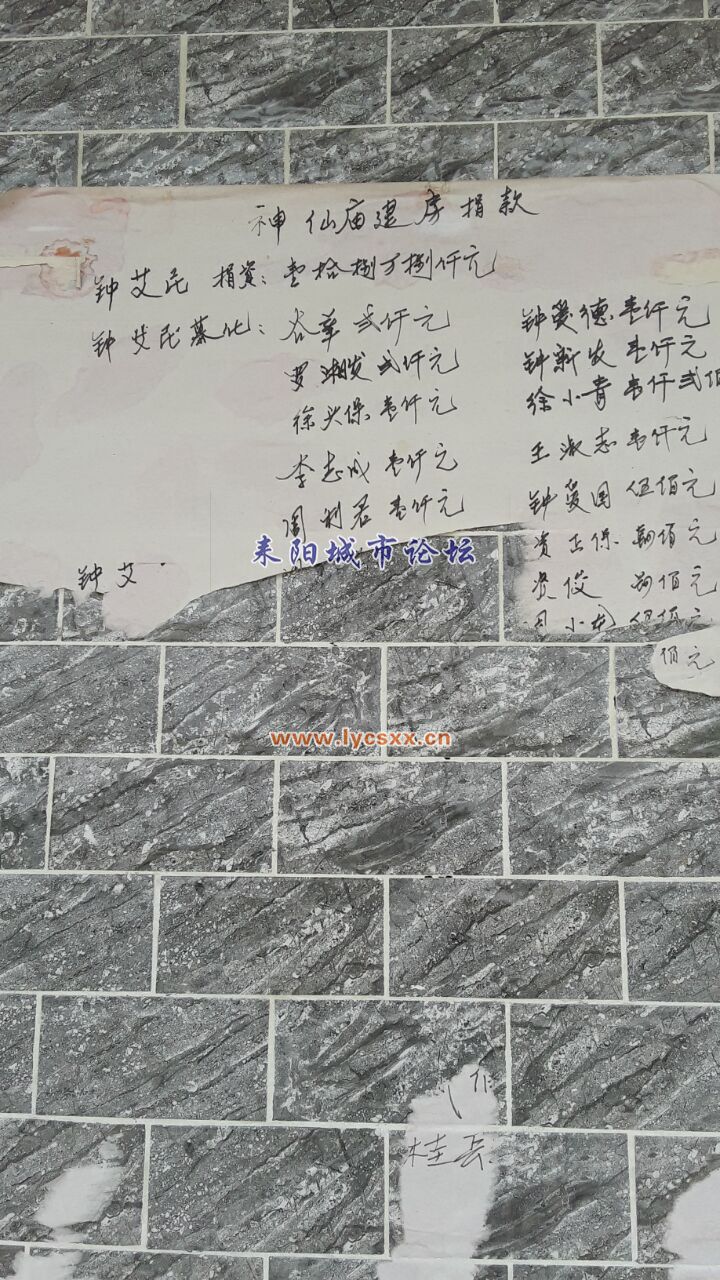 神仙庙建房捐款
钟艾民 捐资：壹拾捌万捌仟元
钟艾民募化：谷华 贰仟元
罗湘发 贰仟元
徐火保 壹仟元
李志成 壹仟元
周利君 壹仟元
钟艾
钟爱德 壹仟元
钟新发 壹仟元
徐小青 壹仟贰佰
王淑志 壹仟元
钟爱国 伍佰元
资正保 佰元
资俊 佰元
周小 伍佰元
佰元
耒阳城市论坛
www.lycsxx.cn
桂兵